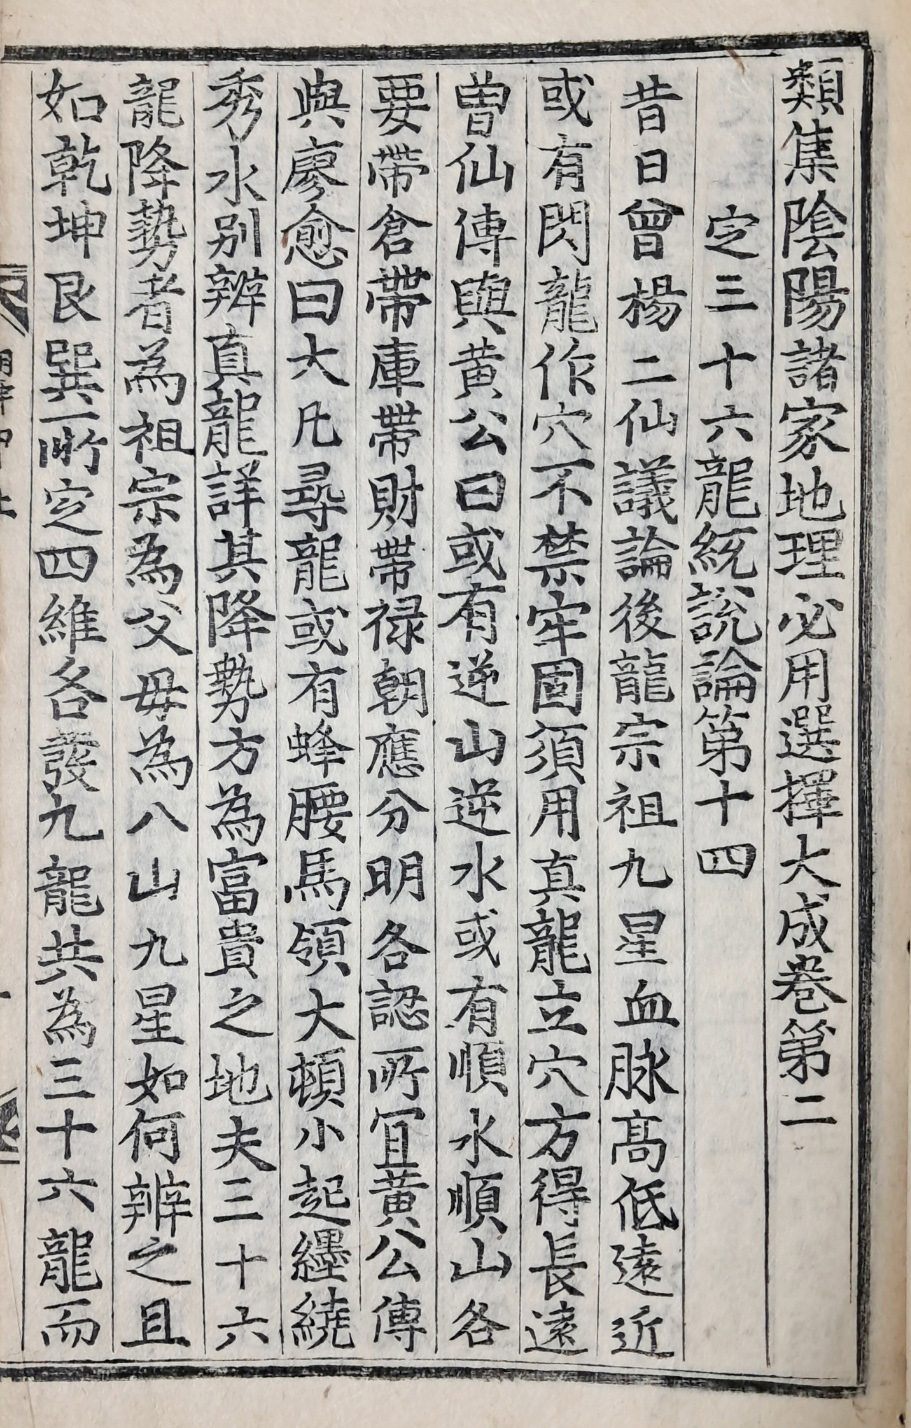 類集陰陽諸家地理必用選擇大成卷第二
定三十六龍統說論第十四
昔日曾楊二仙議論後龍宗祖九星血脉髙低遠近
或有閃龍作穴不禁牢固須用真龍立穴方得長遠
曽仙傳與黄公曰或有逆山逆水或有順水順山各
要帶倉帶庫帶財帶禄朝應分明各認所冝黄公傳
與廖愈曰大凡尋龍或有蜂腰馬領大頓小起纒繞
秀水别辨真龍詳其降勢方為富貴之地夫三十六
龍降勢者為祖宗為父母為八山九星如何辨之且
如乾坤艮巽一所定四維各發九龍共為三十六龍而